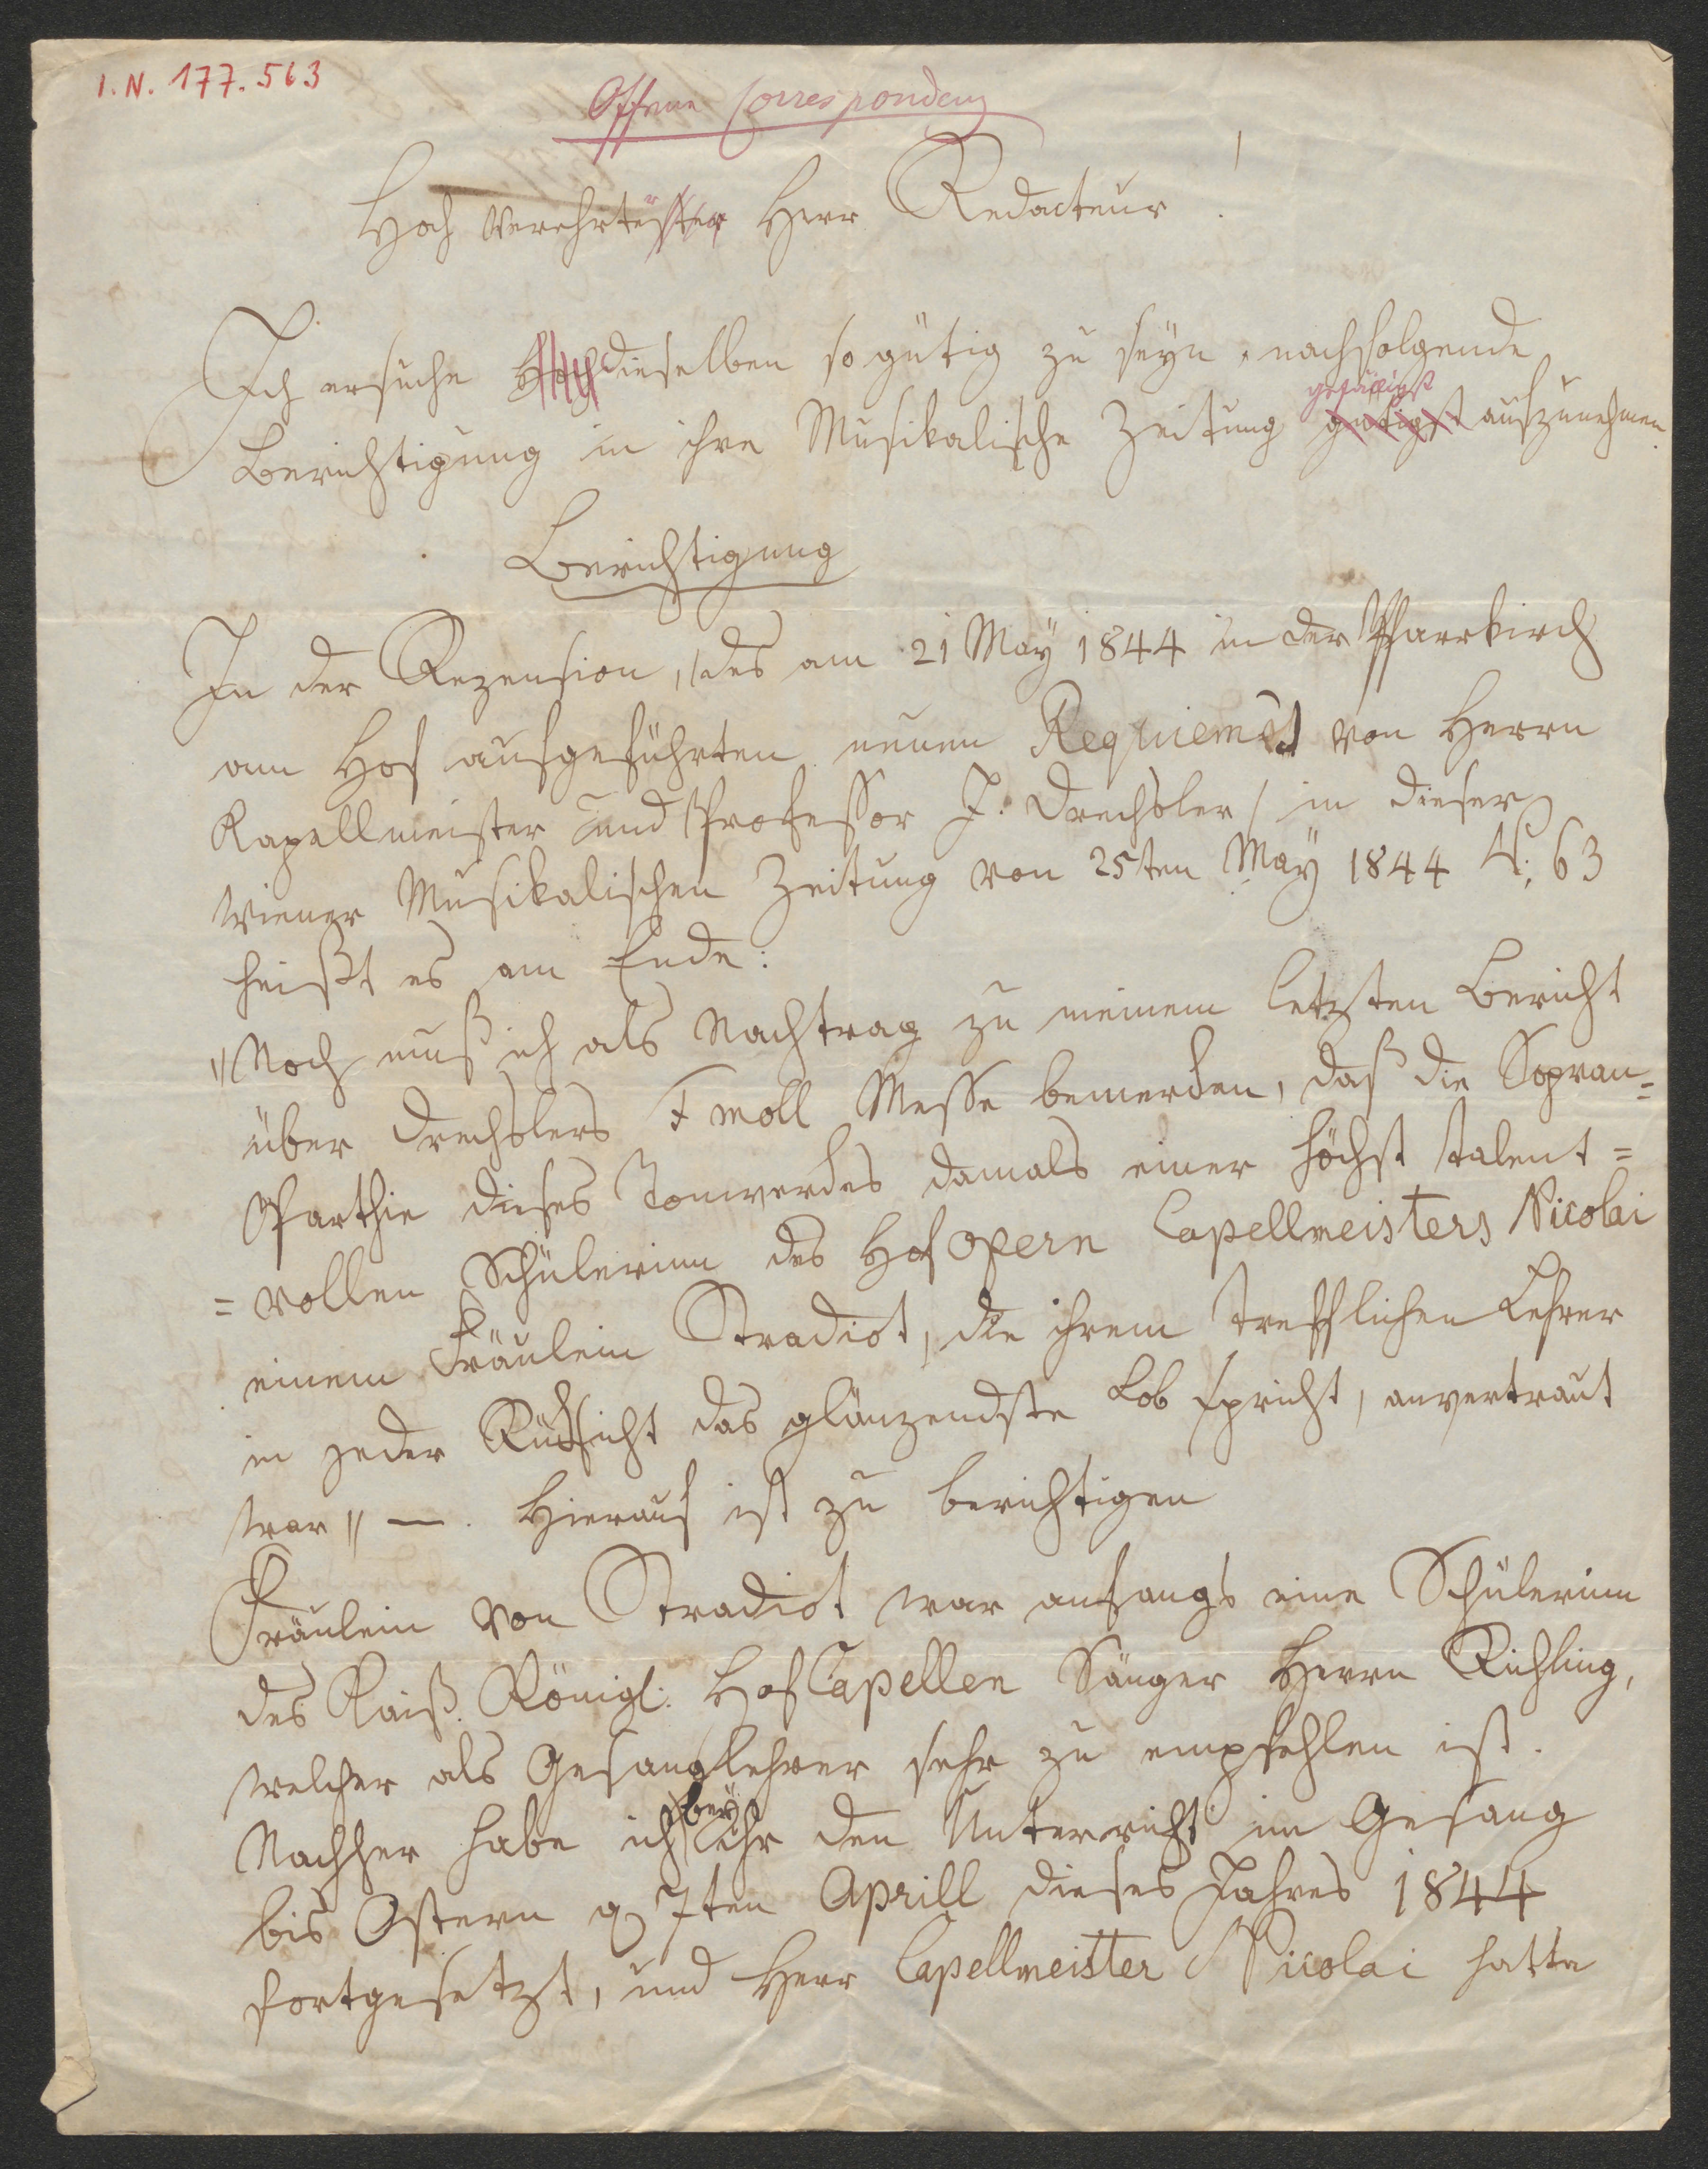 I. N. 177.563
Offene Correspondenz
Hoch Verehrtester Herr Redacteur!
Ich ersuche Hochdieselben so gütig zu seyn, nachfolgende
gefälligst
Berichtigung in ihre Musikalische Zeitung gütigst aufzunehmen.
Berichtigung
In der Rezension, /des am 21 May 1844 in der Pfarrkirch
am Hof aufgeführten neuen Requiems von Herrn
Kapellmeister und Professor J. Drechsler/ in dieser
Wiener Musikalischen Zeitung von 25ten May 1844 N: 63
heißt es am Ende:
"Noch muß ich als Nachtrag zu meinem letzten Bericht
über Drechslers F moll Messe bemerken, daß die Sopran=
Parthie dieses Tonwerkes damals einer höchst talent=
=vollen Schülerinn des Hof opern Capellmeisters Nicolai
einem Fräulein Stradiot, die ihrem trefflichen Lehrer
in jeder Rücksicht das glänzendste Lob spricht, anvertraut
war" —. Hierauf ist zu berichtigen
Fräulein von Stradiot war anfangs eine Schülerinn
des Kaiß. Königl: HofCapellen Sänger Herrn Richling,
welcher als Gesanglehrer sehr zu empfehlen ist.
bey
Nachher habe ich ihr den Unterricht im Gesang
bis Ostern 7ten Aprill dieses Jahres 1844
fortgesetzt, und Herr Capellmeister Nicolai hatte